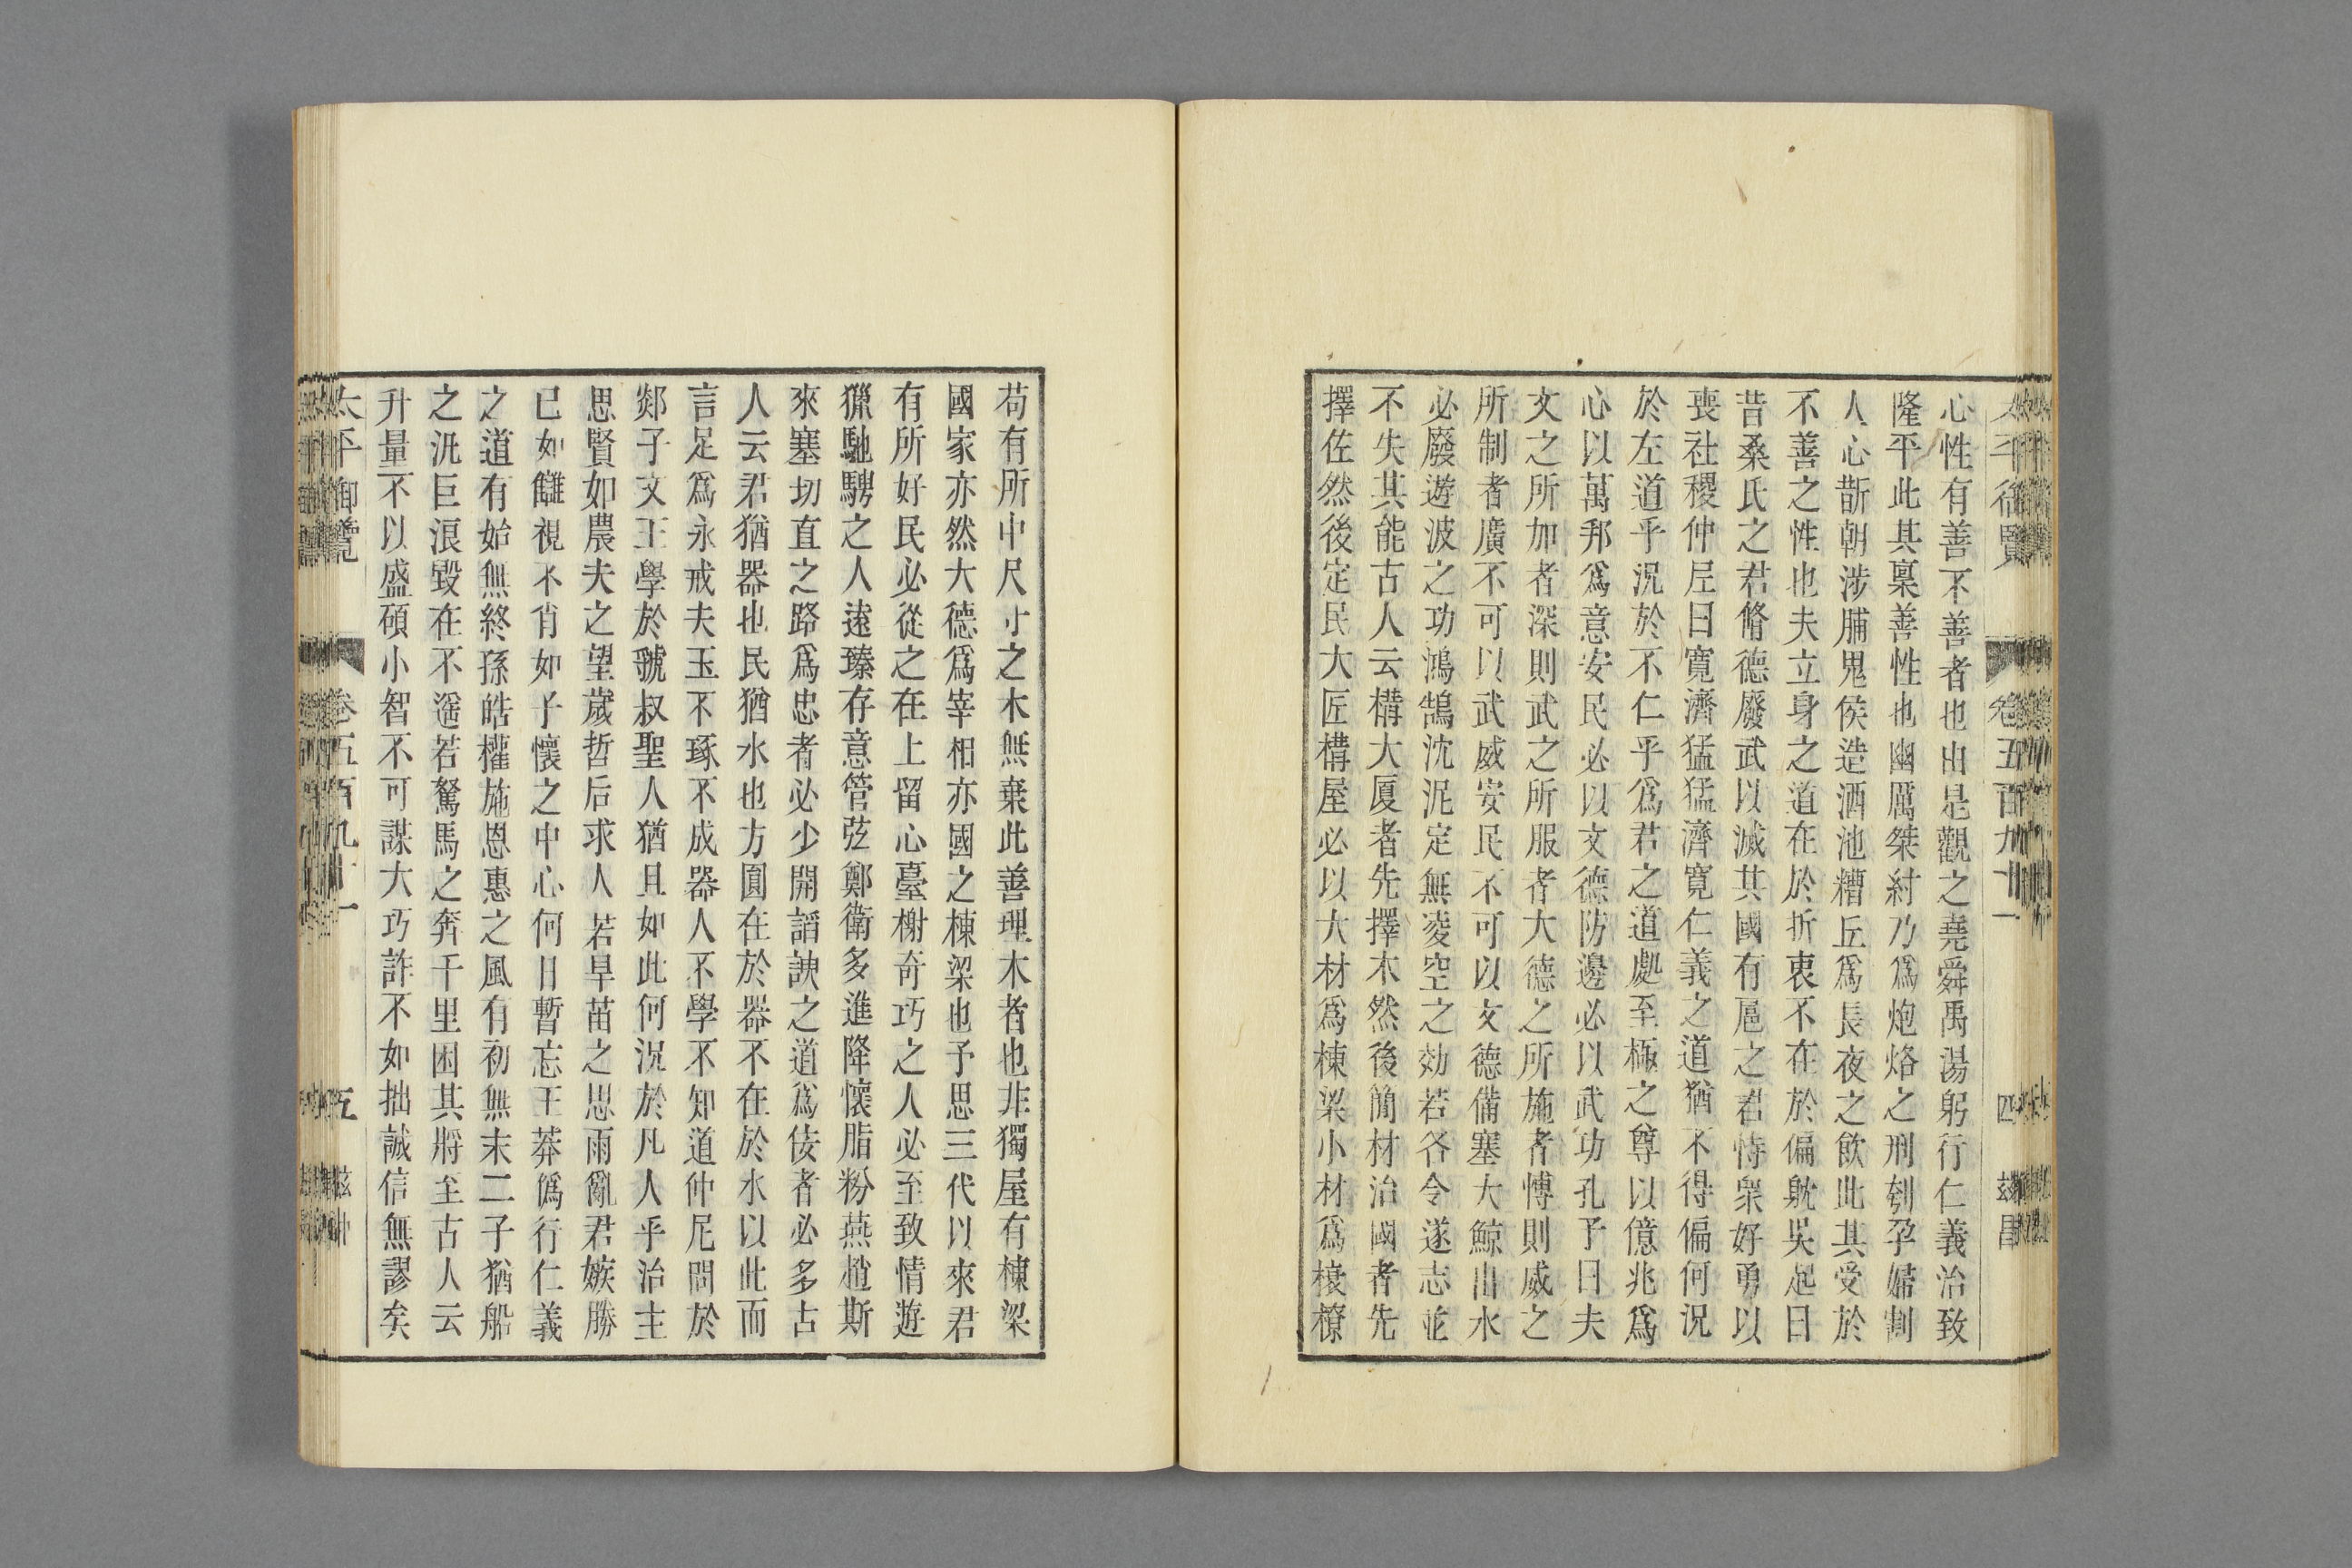 太平御覽 卷五百九十一 四 兹昌
心性有善不善者也由是觀之堯舜禹湯躬行仁義治致
隆平此其稟善性也幽厲桀紂乃爲炮烙之刑刳孕婦割
人心斮朝涉脯鬼侯造酒池糟丘爲長夜之飲此其受於
不善之性也夫立身之道在於折衷不在於偏躭吳起曰
昔桑氏之君脩德廢武以滅其國有扈之君恃衆好勇以
喪社稷仲尼曰寬濟猛猛濟寬仁義之道猶不得偏何況
於左道乎況於不仁乎爲君之道處至極之尊以億兆爲
心以萬邦爲意安民必以文德防邊必以武功孔子曰夫
文之所加者深則武之所服者大德之所施者博則威之
所制者廣不可以武威安民不可以文德備塞大鯨出水
必廢遊波之功鴻鵠沈泥定無凌空之効若各令遂志並
不失其能古人云構大厦者先擇木然後簡材治國者先
擇佐然後定民大匠構屋必以大材爲棟梁小材爲榱橑
苟有所中尺寸之木無棄此善理木者也非獨屋有棟梁
國家亦然大德爲宰相亦國之棟梁也予思三代以來君
有所好民必從之在上留心臺榭奇巧之人必至致情遊
獵馳騁之人遠臻存意管弦鄭衛多進降懷脂粉燕趙斯
來塞切直之路爲忠者必少開諂諛之道爲佞者必多古
人云君猶器也民猶水也方圓在於器不在於水以此而
言足爲永戒夫玉不琢不成器人不學不知道仲尼問於
郯子文王學於虢叔聖人猶且如此何況於凡人乎治主
思賢如農夫之望歲哲后求人若旱苗之思雨亂君嫉勝
已如讎視不肖如子懷之中心何日暫忘王莽僞行仁義
之道有始無終孫皓權施恩惠之風有初無末二子猶船
之汎巨浪毀在不遥若駑馬之奔千里困其將至古人云
升量不以盛碩小智不可謀大巧詐不如拙誠信無謬矣
太平御覽 卷五百九十一 五